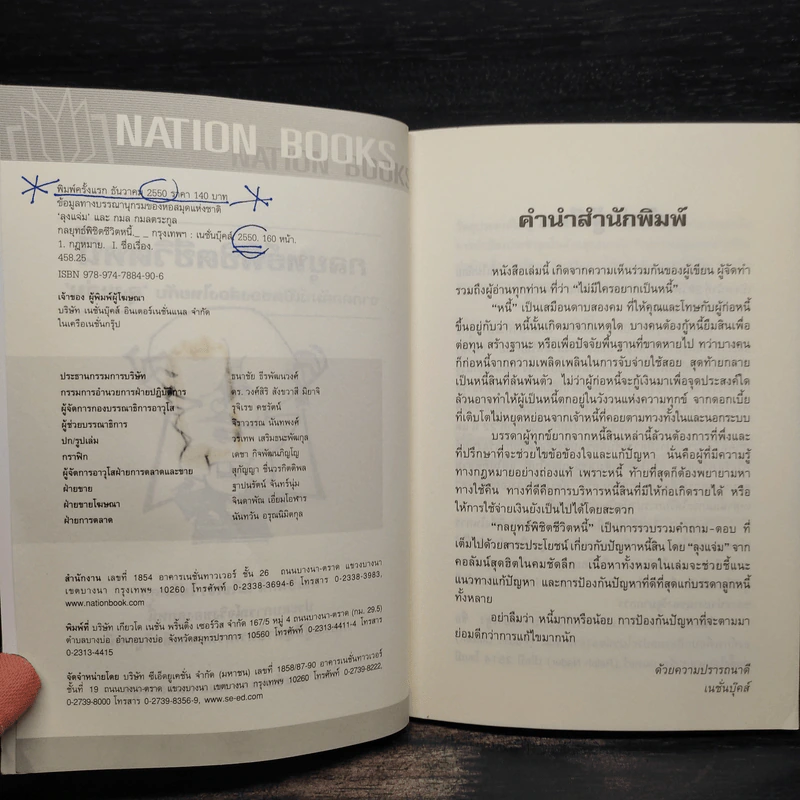 NATION BOOKS
พิมพ์ครั้งแรก ธันวาคม 2550 ราคา 140 บาท
ข้อมูลทางบรรณานุกรมของหอสมุดแห่งชาติ
'ลุงแจ่ม' และ กมล กมลตระกูล
กลยุทธ์พิชิตชีวิตหนี้_ _ กรุงเทพฯ : เนชั่นบุ๊คส์, 2550. 160 หน้า.
1. กฎหมาย. I. ชื่อเรื่อง.
458.25
ISBN 978-974-7884-90-6
เจ้าของ ผู้พิมพ์ผู้โฆษณา
บริษัท เนชั่นบุ๊คส์ อินเตอร์เนชั่นแนล จำกัด
ในเครือเนชั่นกรุ๊ป
ประธานกรรมการบริษัท ธนาชัย ธีรพัฒนวงศ์
กรรมการอำนวยการฝ่ายปฏิบัติการ ดร. วงศ์สิริ สังขวาสี มิยาจิ
ผู้จัดการกองบรรณาธิการอาวุโส รุจิเรข คชรัตน์
ผู้ช่วยบรรณาธิการ จิราวรรณ นันทพงศ์
ปก/รูปเล่ม วรเทพ เสริมธนะพัฒกุล
กราฟิก เดชา กิจพัฒนภิญโญ
ผู้จัดการอาวุโสฝ่ายการตลาดและขาย สุกัญญา ชื่นวรกิตติพล
ฝ่ายขาย ฐาปนรัตน์ จันทร์นุ่ม
ฝ่ายขายโฆษณา จินดาพัณ เอี่ยมโอฬาร
ฝ่ายการตลาด นันทวัน อรุณนิมิตกุล
สำนักงาน เลขที่ 1854 อาคารเนชั่นทาวเวอร์ ชั้น 26 ถนนบางนา-ตราด แขวงบางนา
เขตบางนา กรุงเทพฯ 10260 โทรศัพท์ 0-2338-3694-6 โทรสาร 0-2338-3983,
www.nationbook.com
พิมพ์ที่ บริษัท เกียวโด เนชั่น พริ้นติ้ง เซอร์วิส จำกัด 167/5 หมู่ 4 ถนนบางนา-ตราด (กม. 29.5)
ตำบลบางบ่อ อำเภอบางบ่อ จังหวัดสมุทรปราการ 10560 โทรศัพท์ 0-2313-4411-4 โทรสาร
0-2313-4415
จัดจำหน่ายโดย บริษัท ซีเอ็ดยูเคชั่น จำกัด (มหาชน) เลขที่ 1858/87-90 อาคารเนชั่นทาวเวอร์
ชั้นที่ 19 ถนนบางนา-ตราด แขวงบางนา เขตบางนา กรุงเทพฯ 10260 โทรศัพท์ 0-2739-8222,
0-2739-8000 โทรสาร 0-2739-8356-9, www.se-ed.com
คำนำสำนักพิมพ์
หนังสือเล่มนี้ เกิดจากความเห็นร่วมกันของผู้เขียน ผู้จัดทำ
รวมถึงผู้อ่านทุกท่าน ที่ว่า "ไม่มีใครอยากเป็นหนี้"
"หนี้" เป็นเสมือนดาบสองคม ที่ให้คุณและโทษกับผู้ก่อหนี้
ขึ้นอยู่กับว่า หนี้นั้นเกิดมาจากเหตุใด บางคนต้องกู้หนี้ยืมสินเพื่อ
ต่อทุน สร้างฐานะ หรือเพื่อปัจจัยพื้นฐานที่ขาดหายไป ทว่าบางคน
ก็ก่อหนี้จากความเพลิดเพลินในการจับจ่ายใช้สอย สุดท้ายกลาย
เป็นหนี้สินที่ล้นพ้นตัว ไม่ว่าผู้ก่อหนี้จะกู้เงินมาเพื่อจุดประสงค์ใด
ล้วนอาจทำให้ผู้เป็นหนี้ตกอยู่ในวังวนแห่งความทุกข์ จากดอกเบี้ย
ที่เติบโตไม่หยุดหย่อนจากเจ้าหนี้ที่คอยตามทวงทั้งในและนอกระบบ
บรรดาผู้ทุกข์ยากจากหนี้สินเหล่านี้ล้วนต้องการที่พึ่งและ
ที่ปรึกษาที่จะช่วยไขข้อข้องใจและแก้ปัญหา นั่นคือผู้ที่มีความรู้
ทางกฎหมายอย่างถ่องแท้ เพราะหนี้ ท้ายที่สุดก็ต้องพยายามหา
ทางใช้คืน ทางที่ดีคือการบริหารหนี้สินที่มีให้ก่อเกิดรายได้ หรือ
ให้การใช้จ่ายเงินยังเป็นไปได้โดยสะดวก
"กลยุทธ์พิชิตชีวิตหนี้" เป็นการรวบรวมคำถาม-ตอบ ที่
เต็มไปด้วยสาระประโยชน์ เกี่ยวกับปัญหาหนี้สิน โดย "ลุงแจ่ม" จาก
คอลัมน์สุดฮิตในคมชัดลึก เนื้อหาทั้งหมดในเล่มจะช่วยชี้แนะ
แนวทางแก้ปัญหา และการป้องกันปัญหาที่ดีที่สุดแก่บรรดาลูกหนี้
ทั้งหลาย
อย่าลืมว่า หนี้มากหรือน้อย การป้องกันปัญหาที่จะตามมา
ย่อมดีกว่าการแก้ไขมากนัก
ด้วยความปรารถนาดี
เนชั่นบุ๊คส์